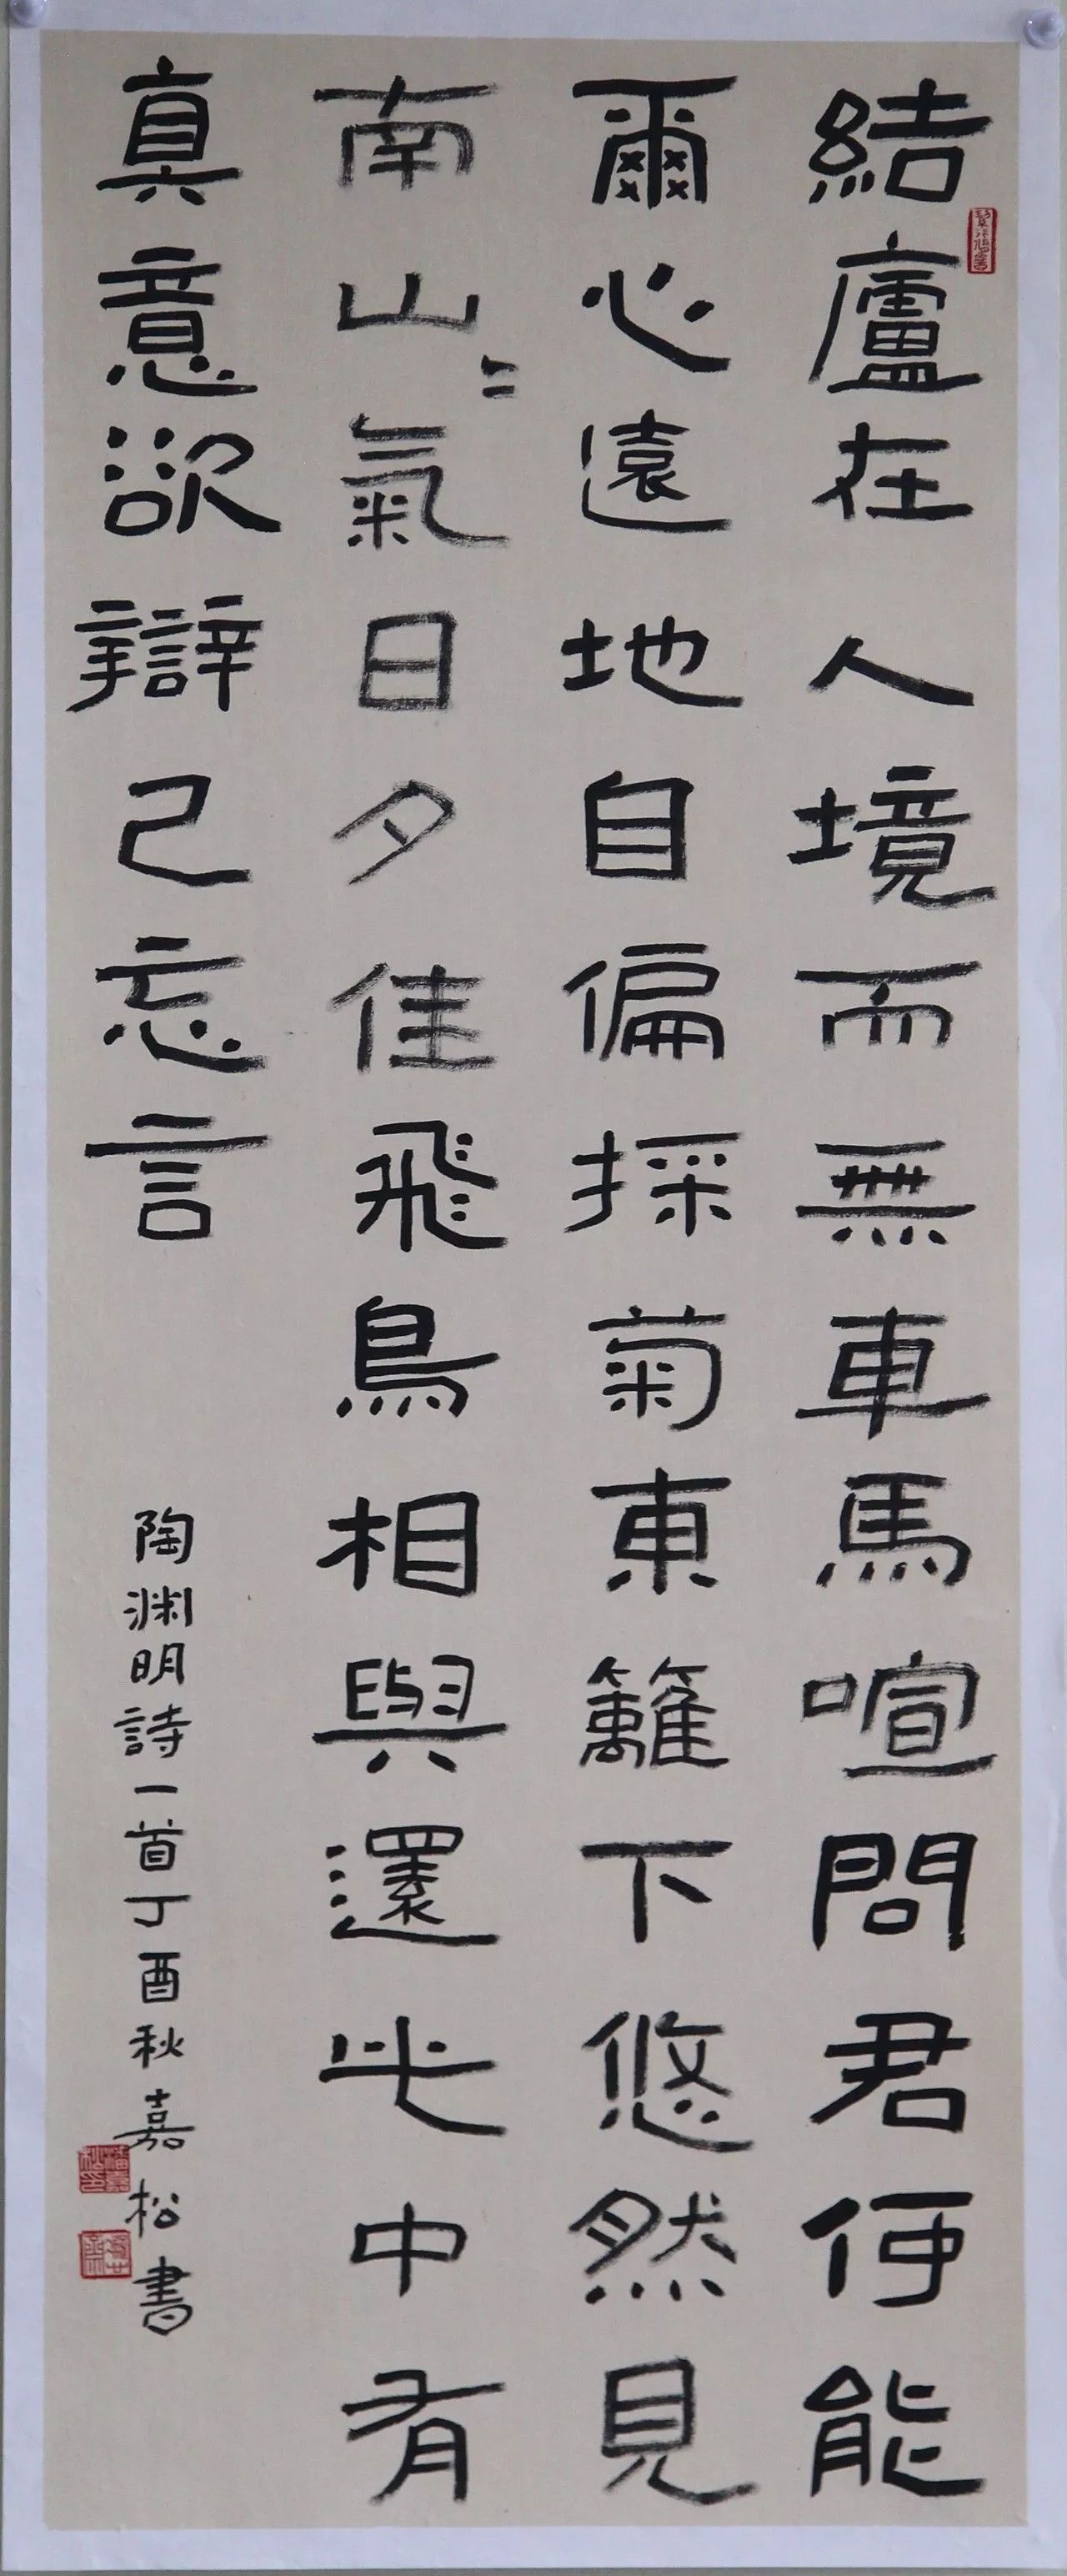 結廬在人境而無車馬喧問君何能
爾心遠地自偏採菊東籬下悠然見
南山〻氣日夕佳飛鳥相與還此中有
真意欲辯已忘言
陶淵明詩一首丁酉秋嘉松書